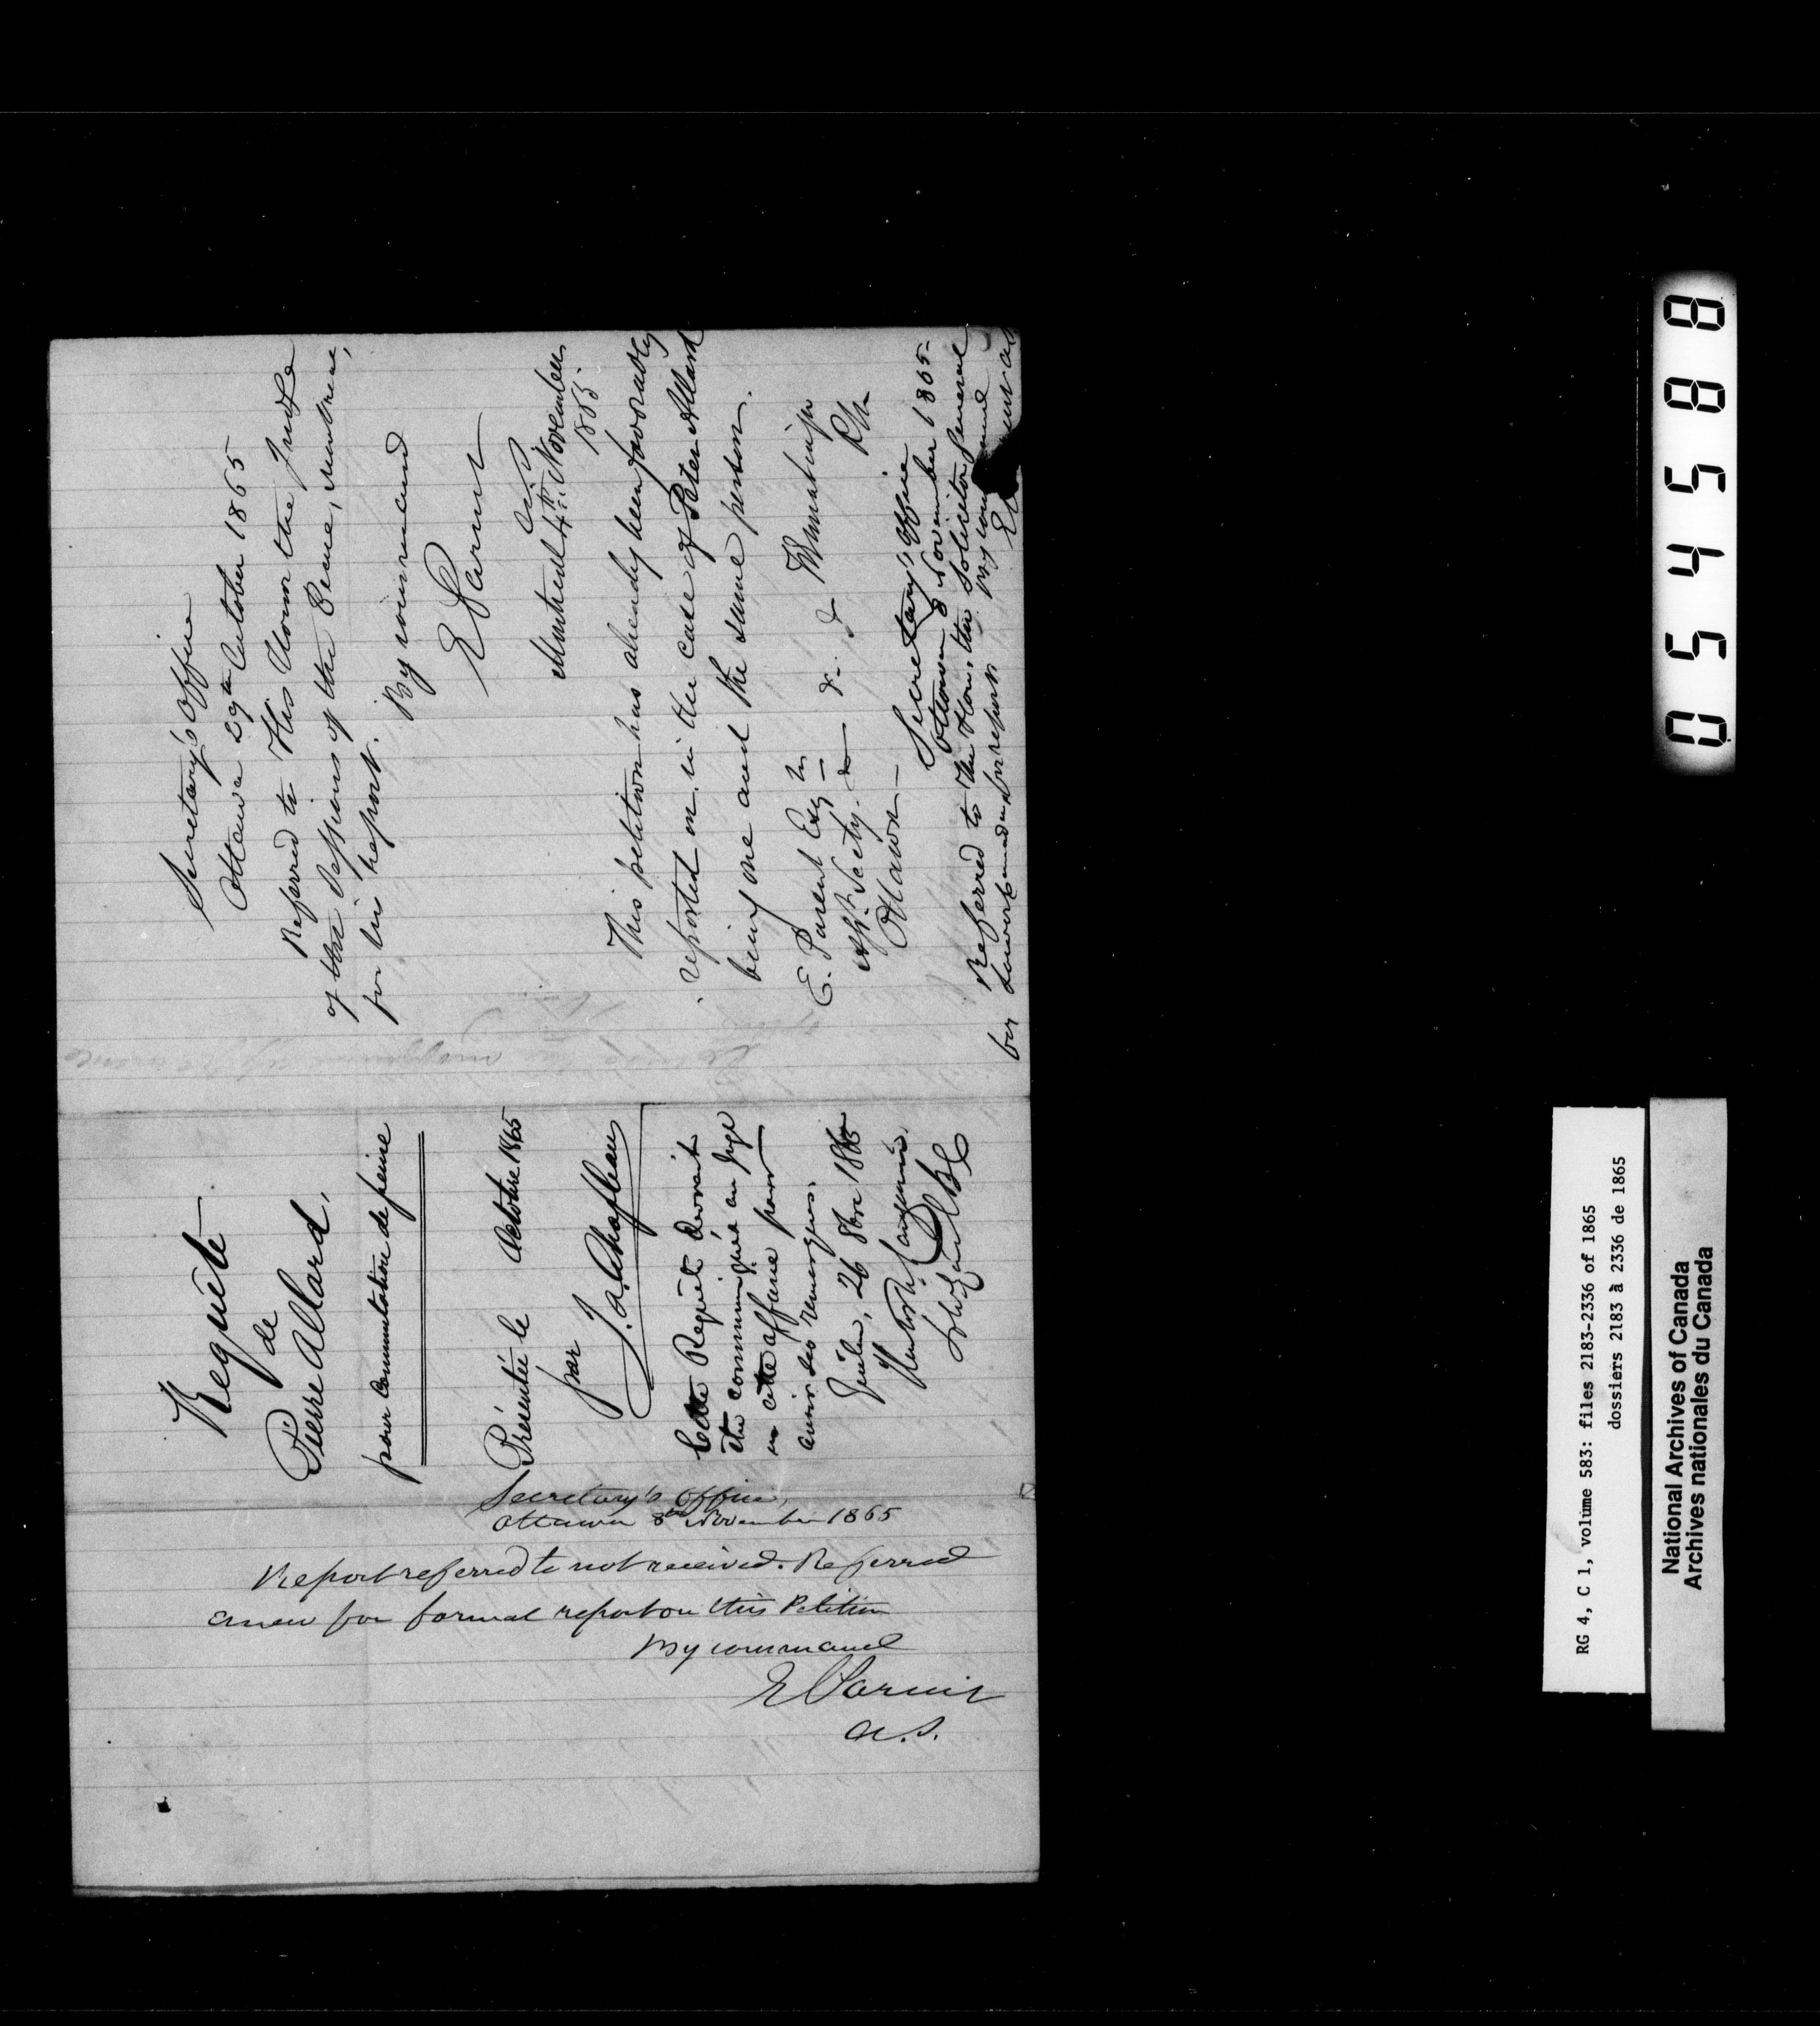 Requête
de
Pierre Allard,
pour commutation de peine
Présentée le Octobre 1865
par
J. A. Chapleau
Cette Requête devrait
être communiquée au Juge
en cette affaire pour
avoir ses remarques.
26 8bre 1865
Hector L. Langevin
Sol. Gen. L.C.
Secretary's Office
Ottawa 29th October 1865
Referred to His Honor the Judge
of the Sessions of the Peace, Montreal,
for his report.
By command
E Parent
A.S.
Montreal 4th November
1865
This petition has already been favorably
reported on in the case of Peter Allard
being one and the same person.
E. Parent Esq
Asst. Secty. &c &c &c
Ottawa
Secretary's Office
Ottawa 8 November 1865
Referred to the Hon. the Solicitor General
for Lower Canada for report.
By command
Secretary's Office,
Ottawa 8th November 1865
Report referred to not received. Referred
anew for formal report on this Petition
By command
E Parent
A.S.
RG 4, C 1, volume 583: files 2183-2336 of 1865
dossiers 2183 à 2336 de 1865
National Archives of Canada
Archives nationales du Canada
054588